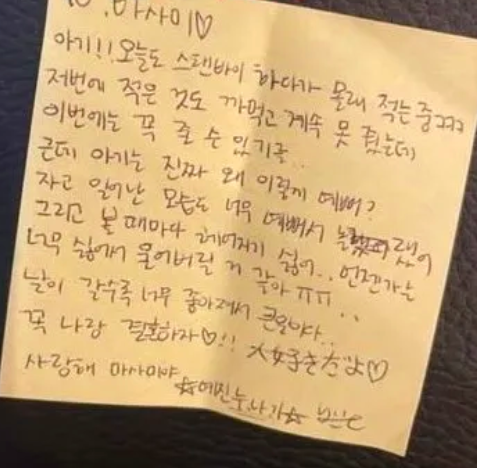 To. 마사미♡
아기!! 오늘도 스탠바이 하다가 몰래 적는중ㅋㅋㅋ
저번에 적은 것도 까먹고 계속 못 줬는데
이번에는 꼭 줄 수 있기를..
근데 아기는 진짜 왜 이렇게 예뻐?
자고 일어난 모습도 너무 예뻐서 놀랬어
그리고 볼 때마다 헤어지기 싫어.. 언젠가는
너무 싫어서 울어버릴 거 같아 ㅠㅠ..
날이 갈수록 너무 좋아져서 큰일이다..
꼭 나랑 결혼하자♡!! 大好きだよ♡
사랑해 마사미야
☆예진누나가☆